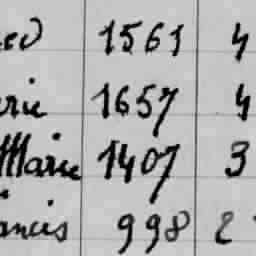 1561 4
rie 1657 4
Marie 1407 3
ancis 998 2